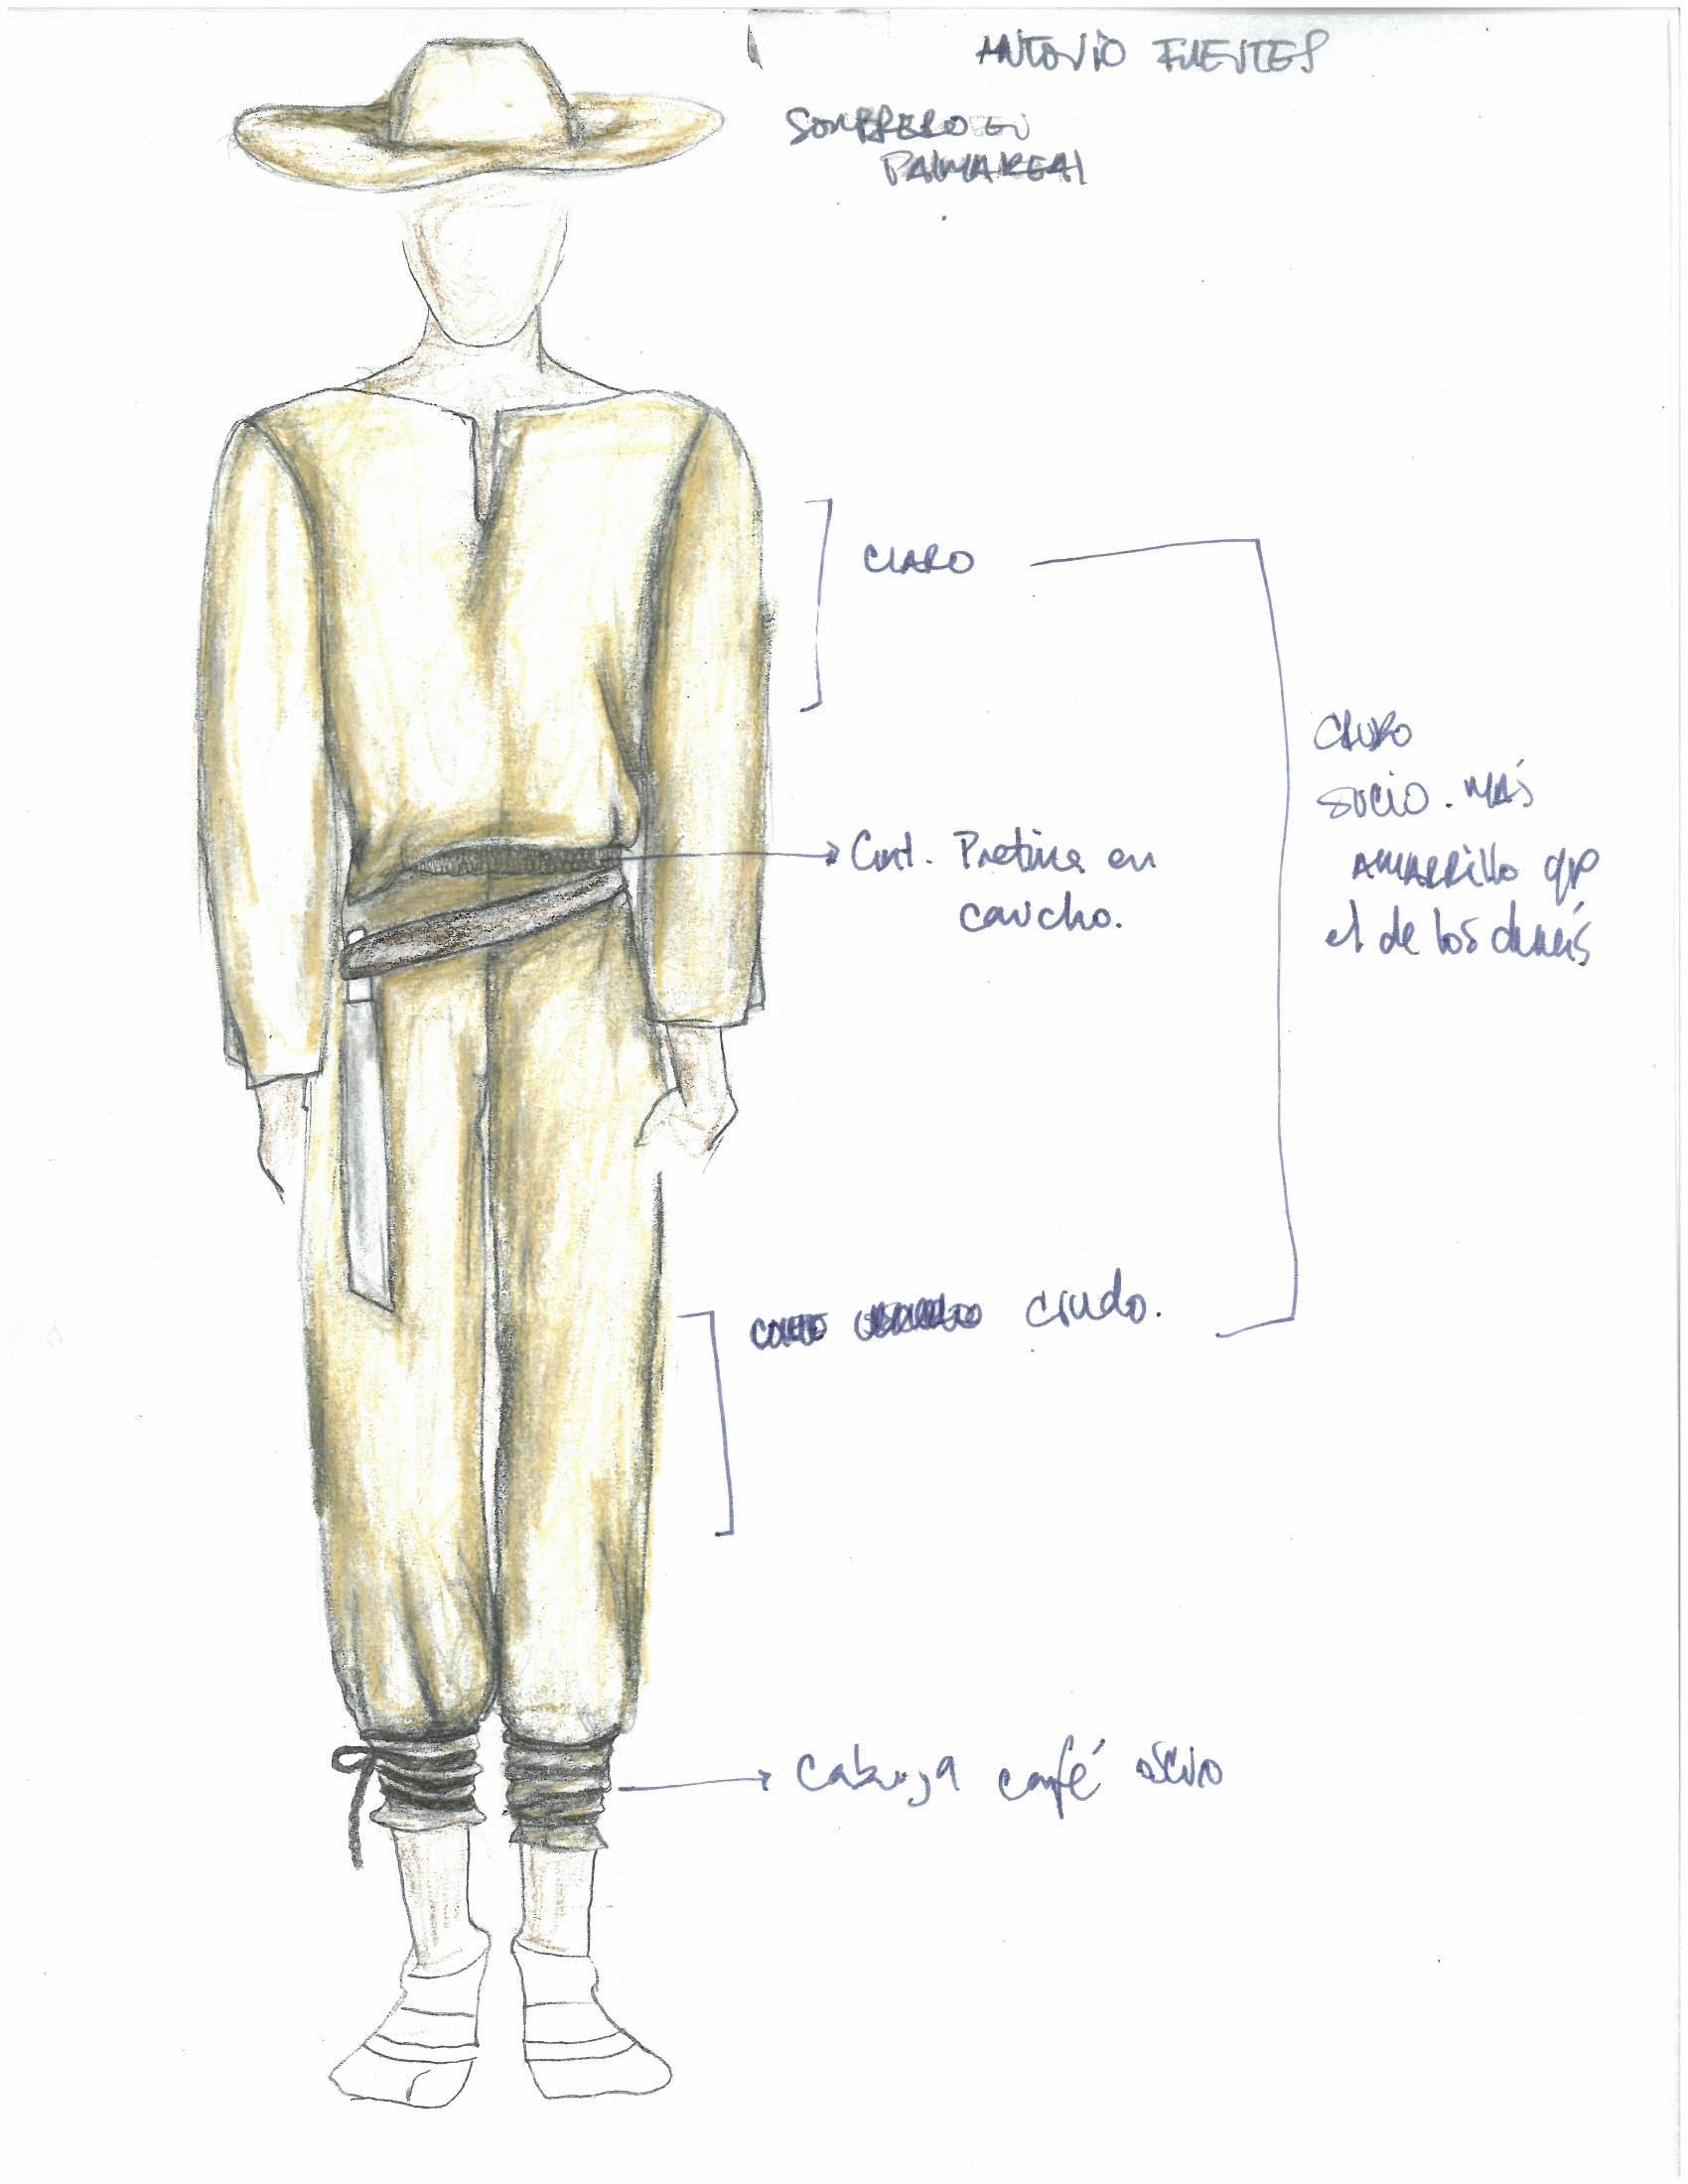 ANTONIO FUENTES
SOMBRERO EN
PALMA REAL
CLARO
CLARO
SUCIO. MÁS
AMARRILLO qe
el de los demás
Cint. Pretina en
caucho.
crudo.
Cabuya café oscuro